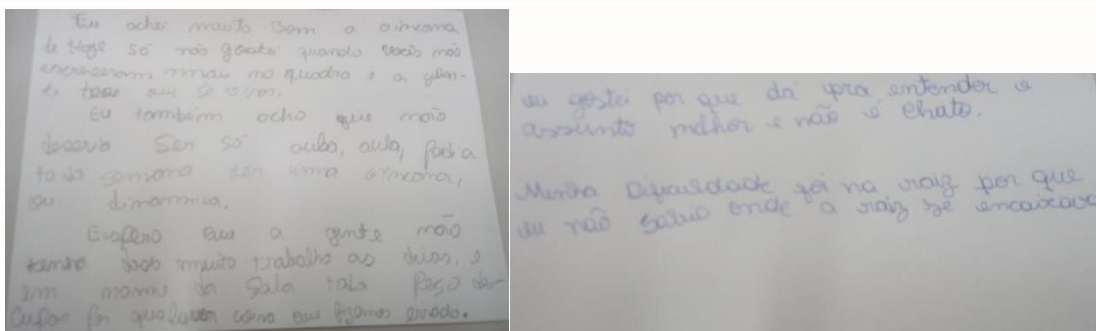 Eu achei muito bom a gincana
de hoje só não gostei quando vocês não
escreceram mais no quadro e a gen-
te teve que so ouvir.
Eu também acho que não
deveria ser só aula, aula, podia
toda semana ter uma gincana,
ou dinamica.
Espero que a gente não
tenha dado muito trabalho as duas, e
em nome da sala toda peso des-
culpas por qualquer coisa que fizemos errado.
eu gostei por que dá pra entender o
assunto melhor e não é chato.
Minha dificuldade foi na raiz por que
eu não sabia onde a raiz se encaixava